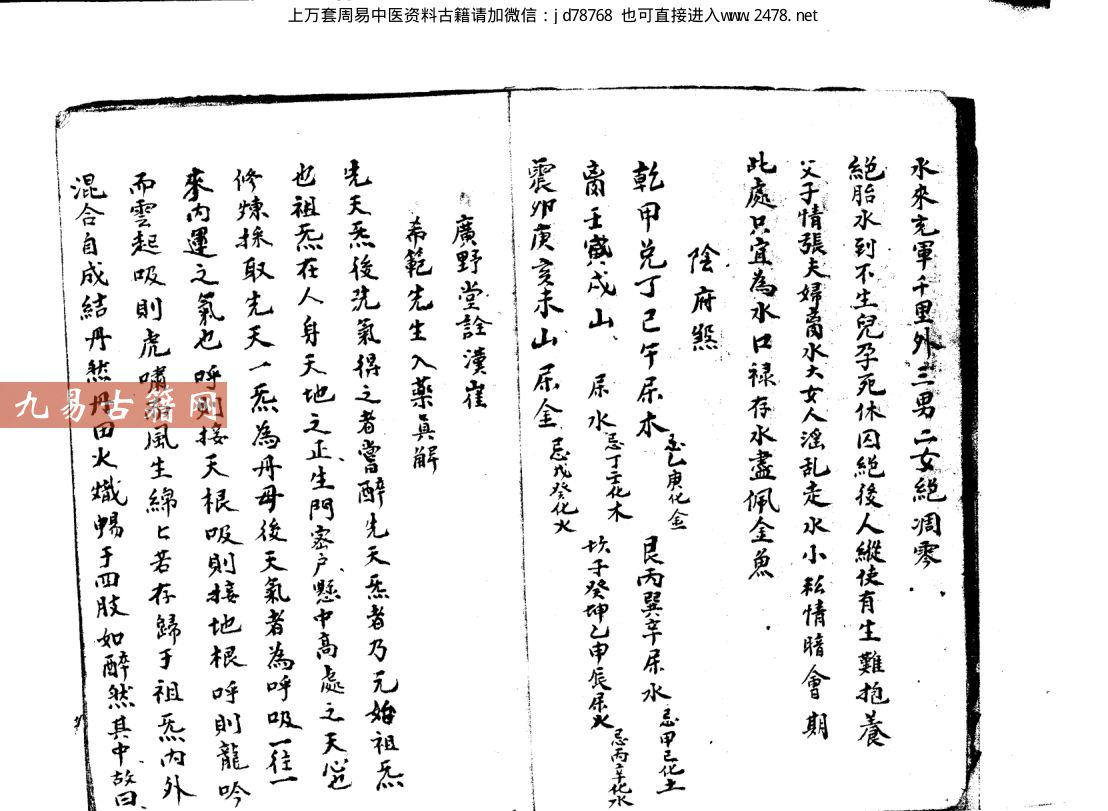 上万套周易中医资料古籍请加微信：jd78768 也可直接进入www.2478.net
水來充軍千里外三男二女絕凋零
絕胎水到不生兒孕死休囚絕後人縱使有生難抱養
父子情張夫婦离水大女人滛乱走水小私情暗會期
此處只宜為水口禄存水盡佩金魚
陰府煞
乾甲兑丁已午屎木忌乙庚化金 艮丙巽辛屎水忌甲己化土
离壬寅戌山屎水忌丁壬化木 坎子癸坤乙申辰屎火忌丙辛化水
震卯庚亥未山屎金忌戊癸化火
廣野堂詮
希範先生入藥真解
先天炁後洗氣得之者嘗醉先天炁者乃元始祖炁
也祖炁在人身天地之正生門密户懸中高處之天心
修煉採取先天一炁為丹母後天氣者為呼吸一往一
來內運之氣也呼則接天根吸則接地根呼則龍吟
而雲起吸則虎嘯風生綿匕若存歸于祖炁內外
混合自成結丹然丹田火熾暢于四肢如醉然其中故曰
九易古籍网